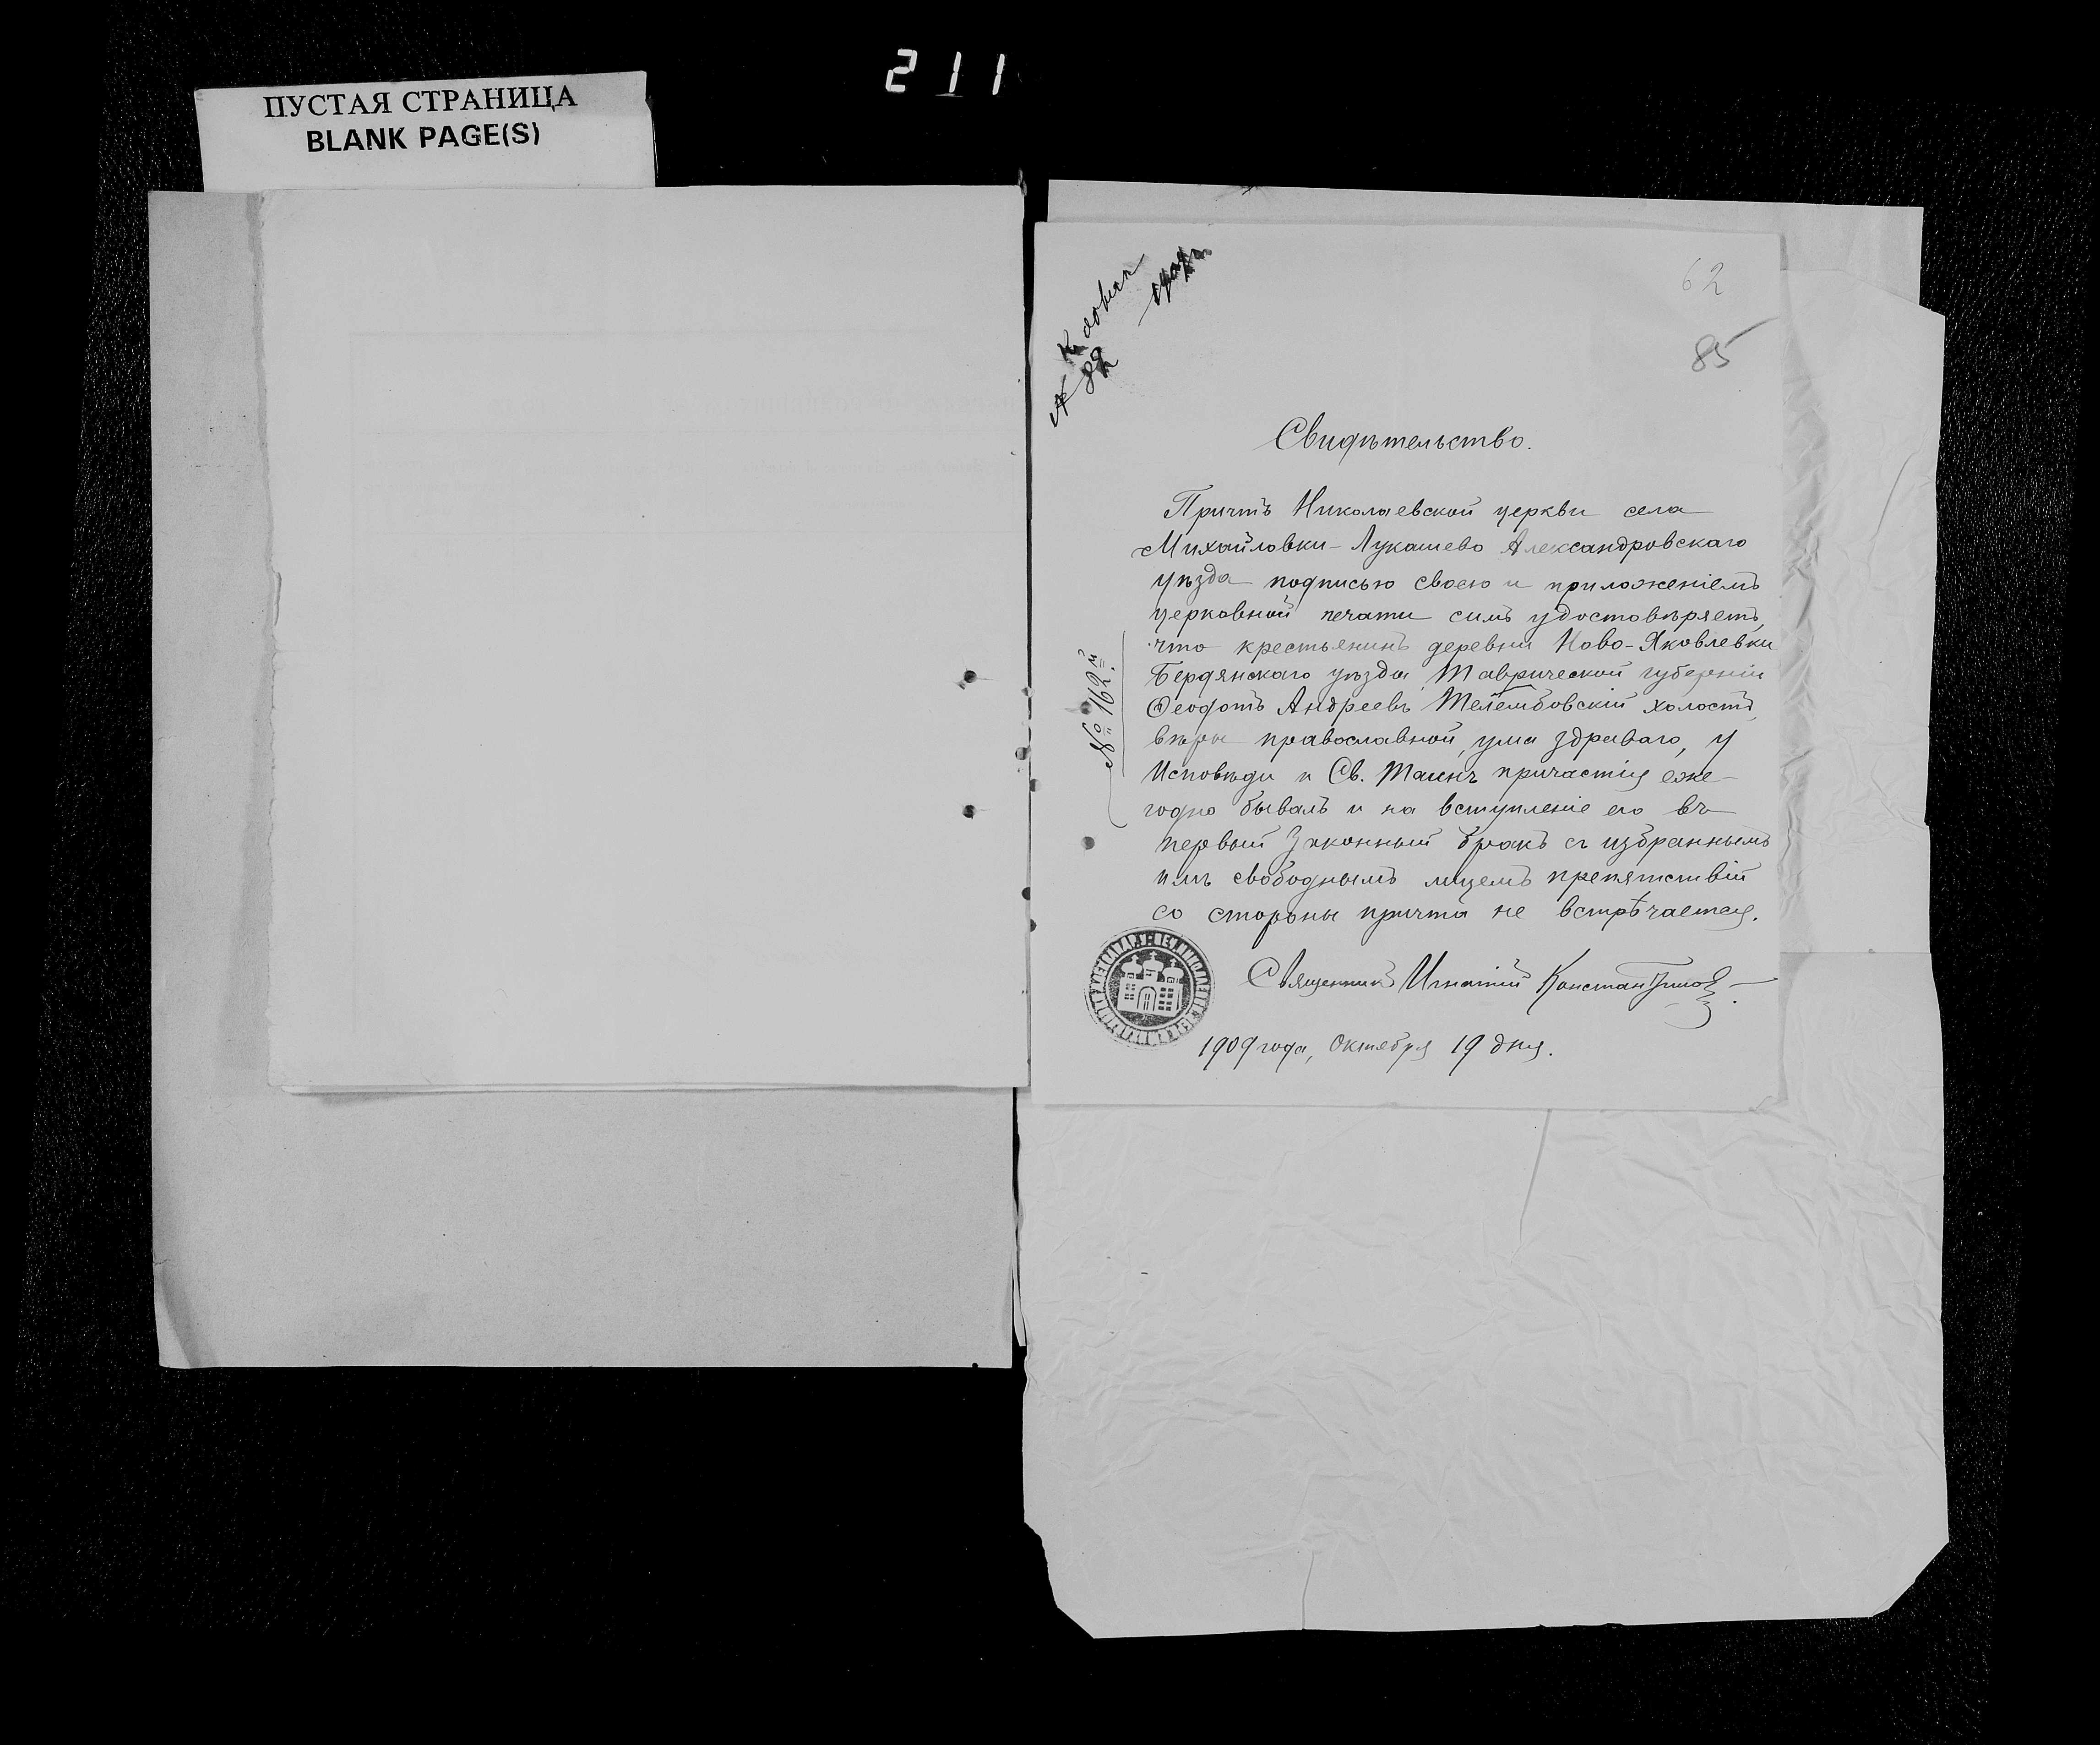 211
ПУСТАЯ СТРАНИЦА
BLANK PAGE(S)
62
85
№ 82
Свидѣтельство.
Причтъ Николаевской церкви села
Михайловки-Лукашево Александровскаго
уѣзда подписью своею и приложеніемъ
церковной печати симъ удостовѣряетъ,
что крестьянинъ деревни Ново-Яковлевки
Бердянскаго уѣзда Таврической губерніи
Ѳеодотъ Андреевъ холостъ,
вѣры православной, ума здраваго, у
Исповѣди и Св. Таинъ причастія еже-
годно бывалъ и на вступленіе его въ
первый законный бракъ съ избраннымъ
имъ свободнымъ лицемъ препятствій
со стороны причта не встрѣчается.
№ 162й
Священникъ Игнатій Константинов
1909 года, Октября 19 дня.